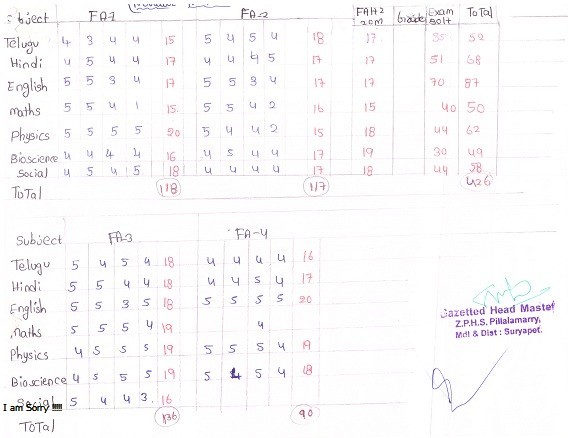 Subject FA-1 FA-2 FA1+2 20m Grade Exam 80M Total
Telugu 4 3 4 4 15 5 4 5 4 18 17 35 52
Hindi 4 5 4 4 17 4 4 4 5 17 17 51 68
English 5 5 3 4 17 5 5 3 4 17 17 70 87
maths 5 5 4 1 15 5 5 4 2 16 15 40 50
Physics 5 5 5 5 20 5 4 4 2 15 18 44 62
Bioscience 4 4 4 4 16 4 5 4 4 17 19 30 49
Social 4 5 4 5 18 4 4 4 4 17 18 44 58
Total 118 117 426
Subject FA-3 FA-4
Telugu 5 4 5 4 18 4 4 4 4 16
Hindi 5 5 4 4 18 4 4 5 4 17
English 5 5 3 5 18 5 5 5 5 20
maths 5 5 5 4 19 4
Physics 4 5 5 5 19 5 5 5 4 19
Bioscience 4 5 5 5 19 5 4 5 4 18
Social 5 4 4 3. 16
I am Sorry !!!!!
Total 136 90
Gazetted Head Master
Z.P.H.S. Pillalamarry,
Mdl & Dist : Suryapet.